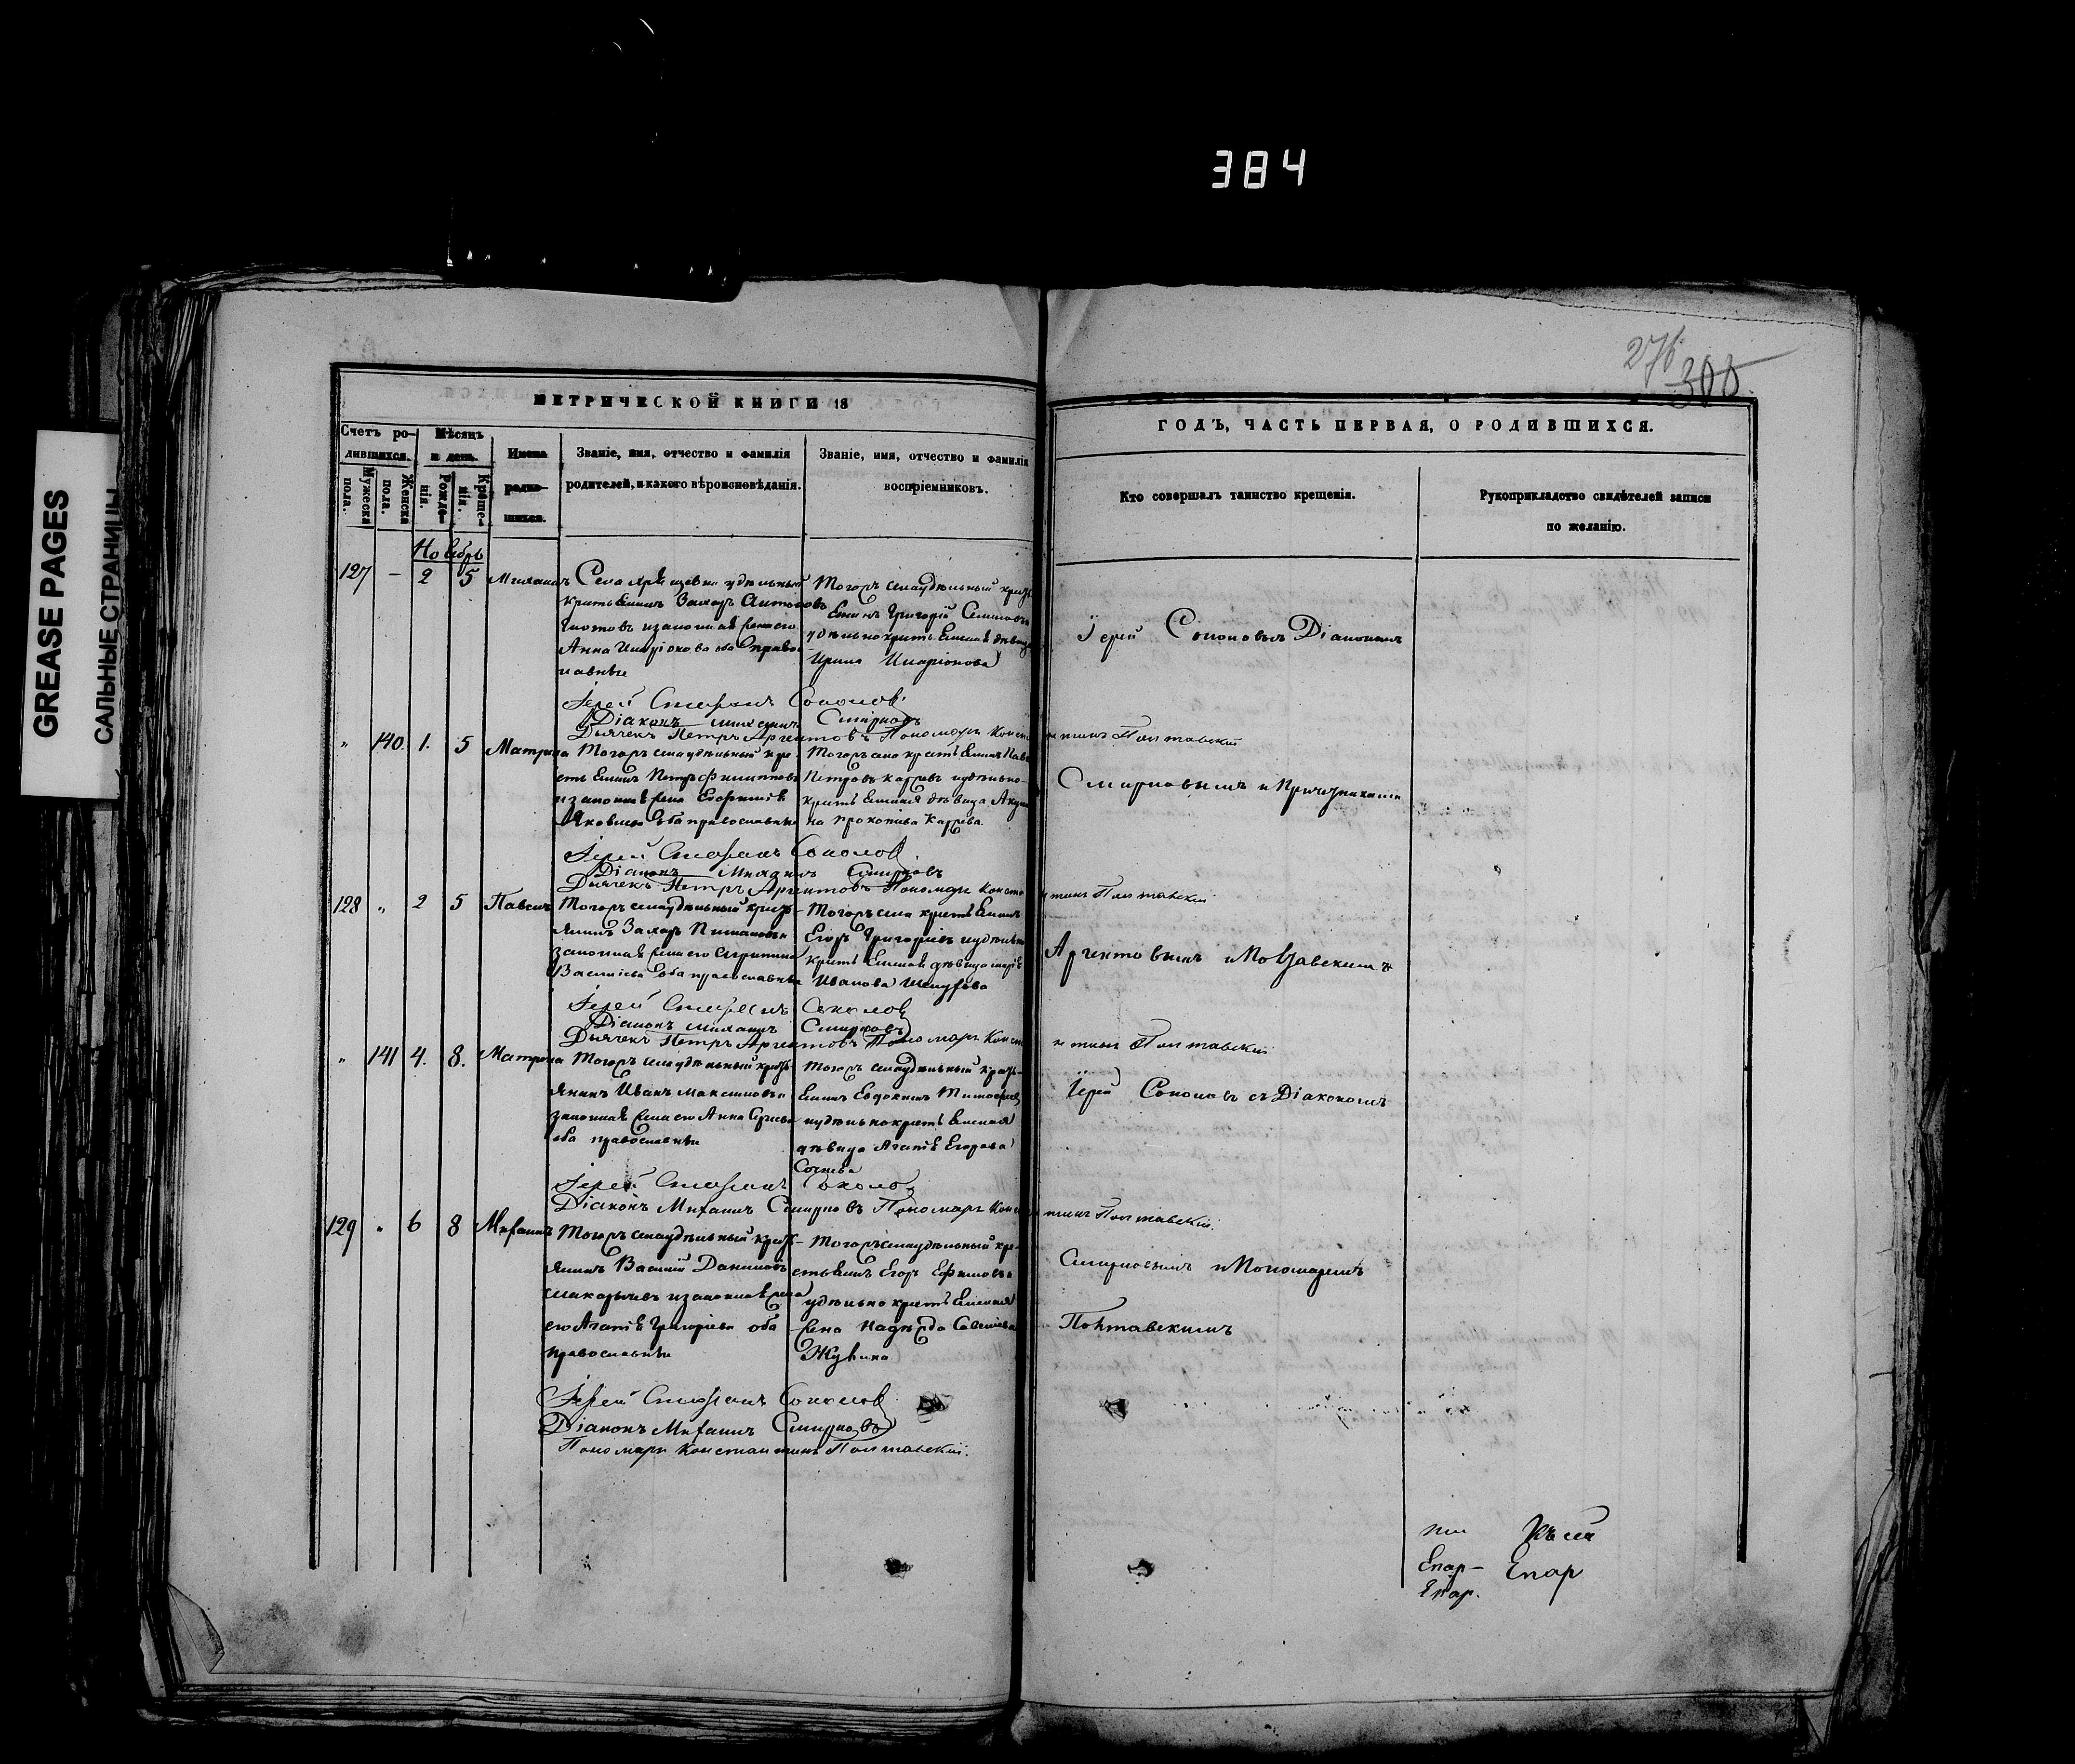 384
GREASE PAGES
САЛЬНЫЕ СТРАНИЦЫ
276
300
МЕТРИЧЕСКОЙ КНИГИ 18
ГОДЪ, ЧАСТЬ ПЕРВАЯ, О РОДИВШИХСЯ.
Счетъ ро-
дившихся.
Мужеска пола.
Женска пола.
Мѣсяцъ
и день.
Рожде-
нія.
Креще-
нія.
Имена
родив-
шихся.
Званіе, имя, отчество и фамилія
родителей, и какого вѣроисповѣданія.
Званіе, имя, отчество и фамилія
воспріемниковъ.
Кто совершалъ таинство крещенія.
Рукоприкладство свидѣтелей записи
по желанію.
Ноябрь
127 - 2 5 Михаилъ
Села удѣльный
крестьянинъ Захаръ Антоновъ
и законная жена его
Анна Иларіонова оба право
славные
Тогожъ села удѣльный крест
янинъ Григорій Семеновъ
удѣльно крестьянская дѣвица
Ирина Иларіонова
Іерей Соколовъ съ Діакономъ
Іерей Стефанъ Соколовъ
Діаконъ Михаилъ Смирновъ
Дьячекъ Петръ Аргентовъ Пономарь Константинъ Полтавскій
" 140. 1. 5 Матрона
Тогожъ села удѣльный кре-
стьянинъ Петръ Филипповъ
и законная жена Евфимія
Яковлева оба православные
Тогожъ села крестьянинъ Павелъ
Петровъ и удѣльно-
крестьянская дѣвица
на Прокопіева
Смирновымъ и Причетниками
Іерей Стефанъ Соколовъ
Діаконъ Михаилъ Смирновъ
Дьячекъ Петръ Аргентовъ Пономарь Константинъ Полтавскій
128 " 2 5 Павелъ
Тогожъ села удѣльный кресть-
янинъ Захаръ и
законная жена его
Васильева оба православные
Тогожъ села крестьянинъ
Егоръ Григорьевъ и удѣльно
крестьянская дѣвица Марія
Иванова
Аргентовымъ и Полтавскимъ
Іерей Стефанъ Соколовъ
Діаконъ Михаилъ Смирновъ
Дьячекъ Петръ Аргентовъ Пономарь Константинъ Полтавскій
" 141 4. 8. Матрона
Тогожъ села удѣльный кресть-
янинъ Иванъ Максимовъ и
законная жена его Анна Сергѣева
оба православные
Тогожъ села удѣльный кресть-
янинъ Евдокимъ Тимофеевъ
и удѣльно крестьянская
дѣвица Агапія Егорова
Іерей Соколовъ съ Діакономъ
Іерей Стефанъ Соколовъ
Діаконъ Михаилъ Смирновъ Пономарь Константинъ Полтавскій.
129 " 6 8 Михаилъ
Тогожъ села удѣльный кресть-
янинъ Василій Даниловъ
Макарычевъ и законная жена
его Агапія Григорьева оба
православные
Тогожъ села удѣльный кре-
стьянинъ Егоръ Ефимовъ и
удѣльно крестьянская
жена Надежда Савельева
Смирновымъ и Пономаремъ
Полтавскимъ
Іерей Стефанъ Соколовъ
Діаконъ Михаилъ Смирновъ
Пономарь Константинъ Полтавскій.
Епар-
Епар
Епар.